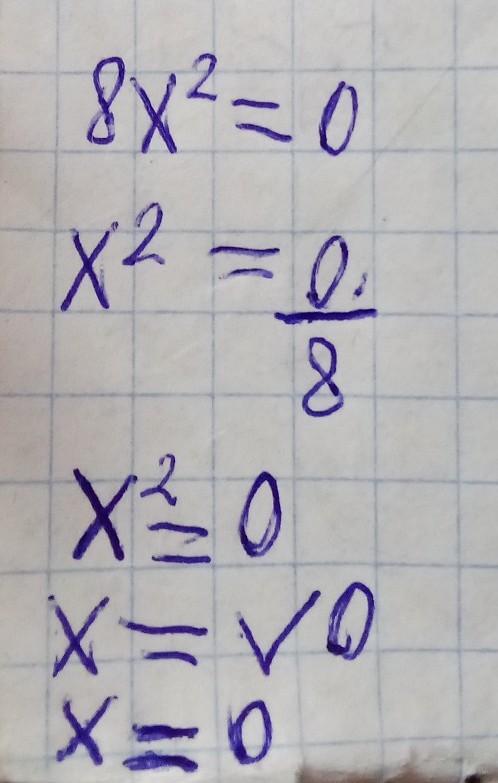 8x² = 0
x² = 0/8
x² = 0
x = √0
x = 0